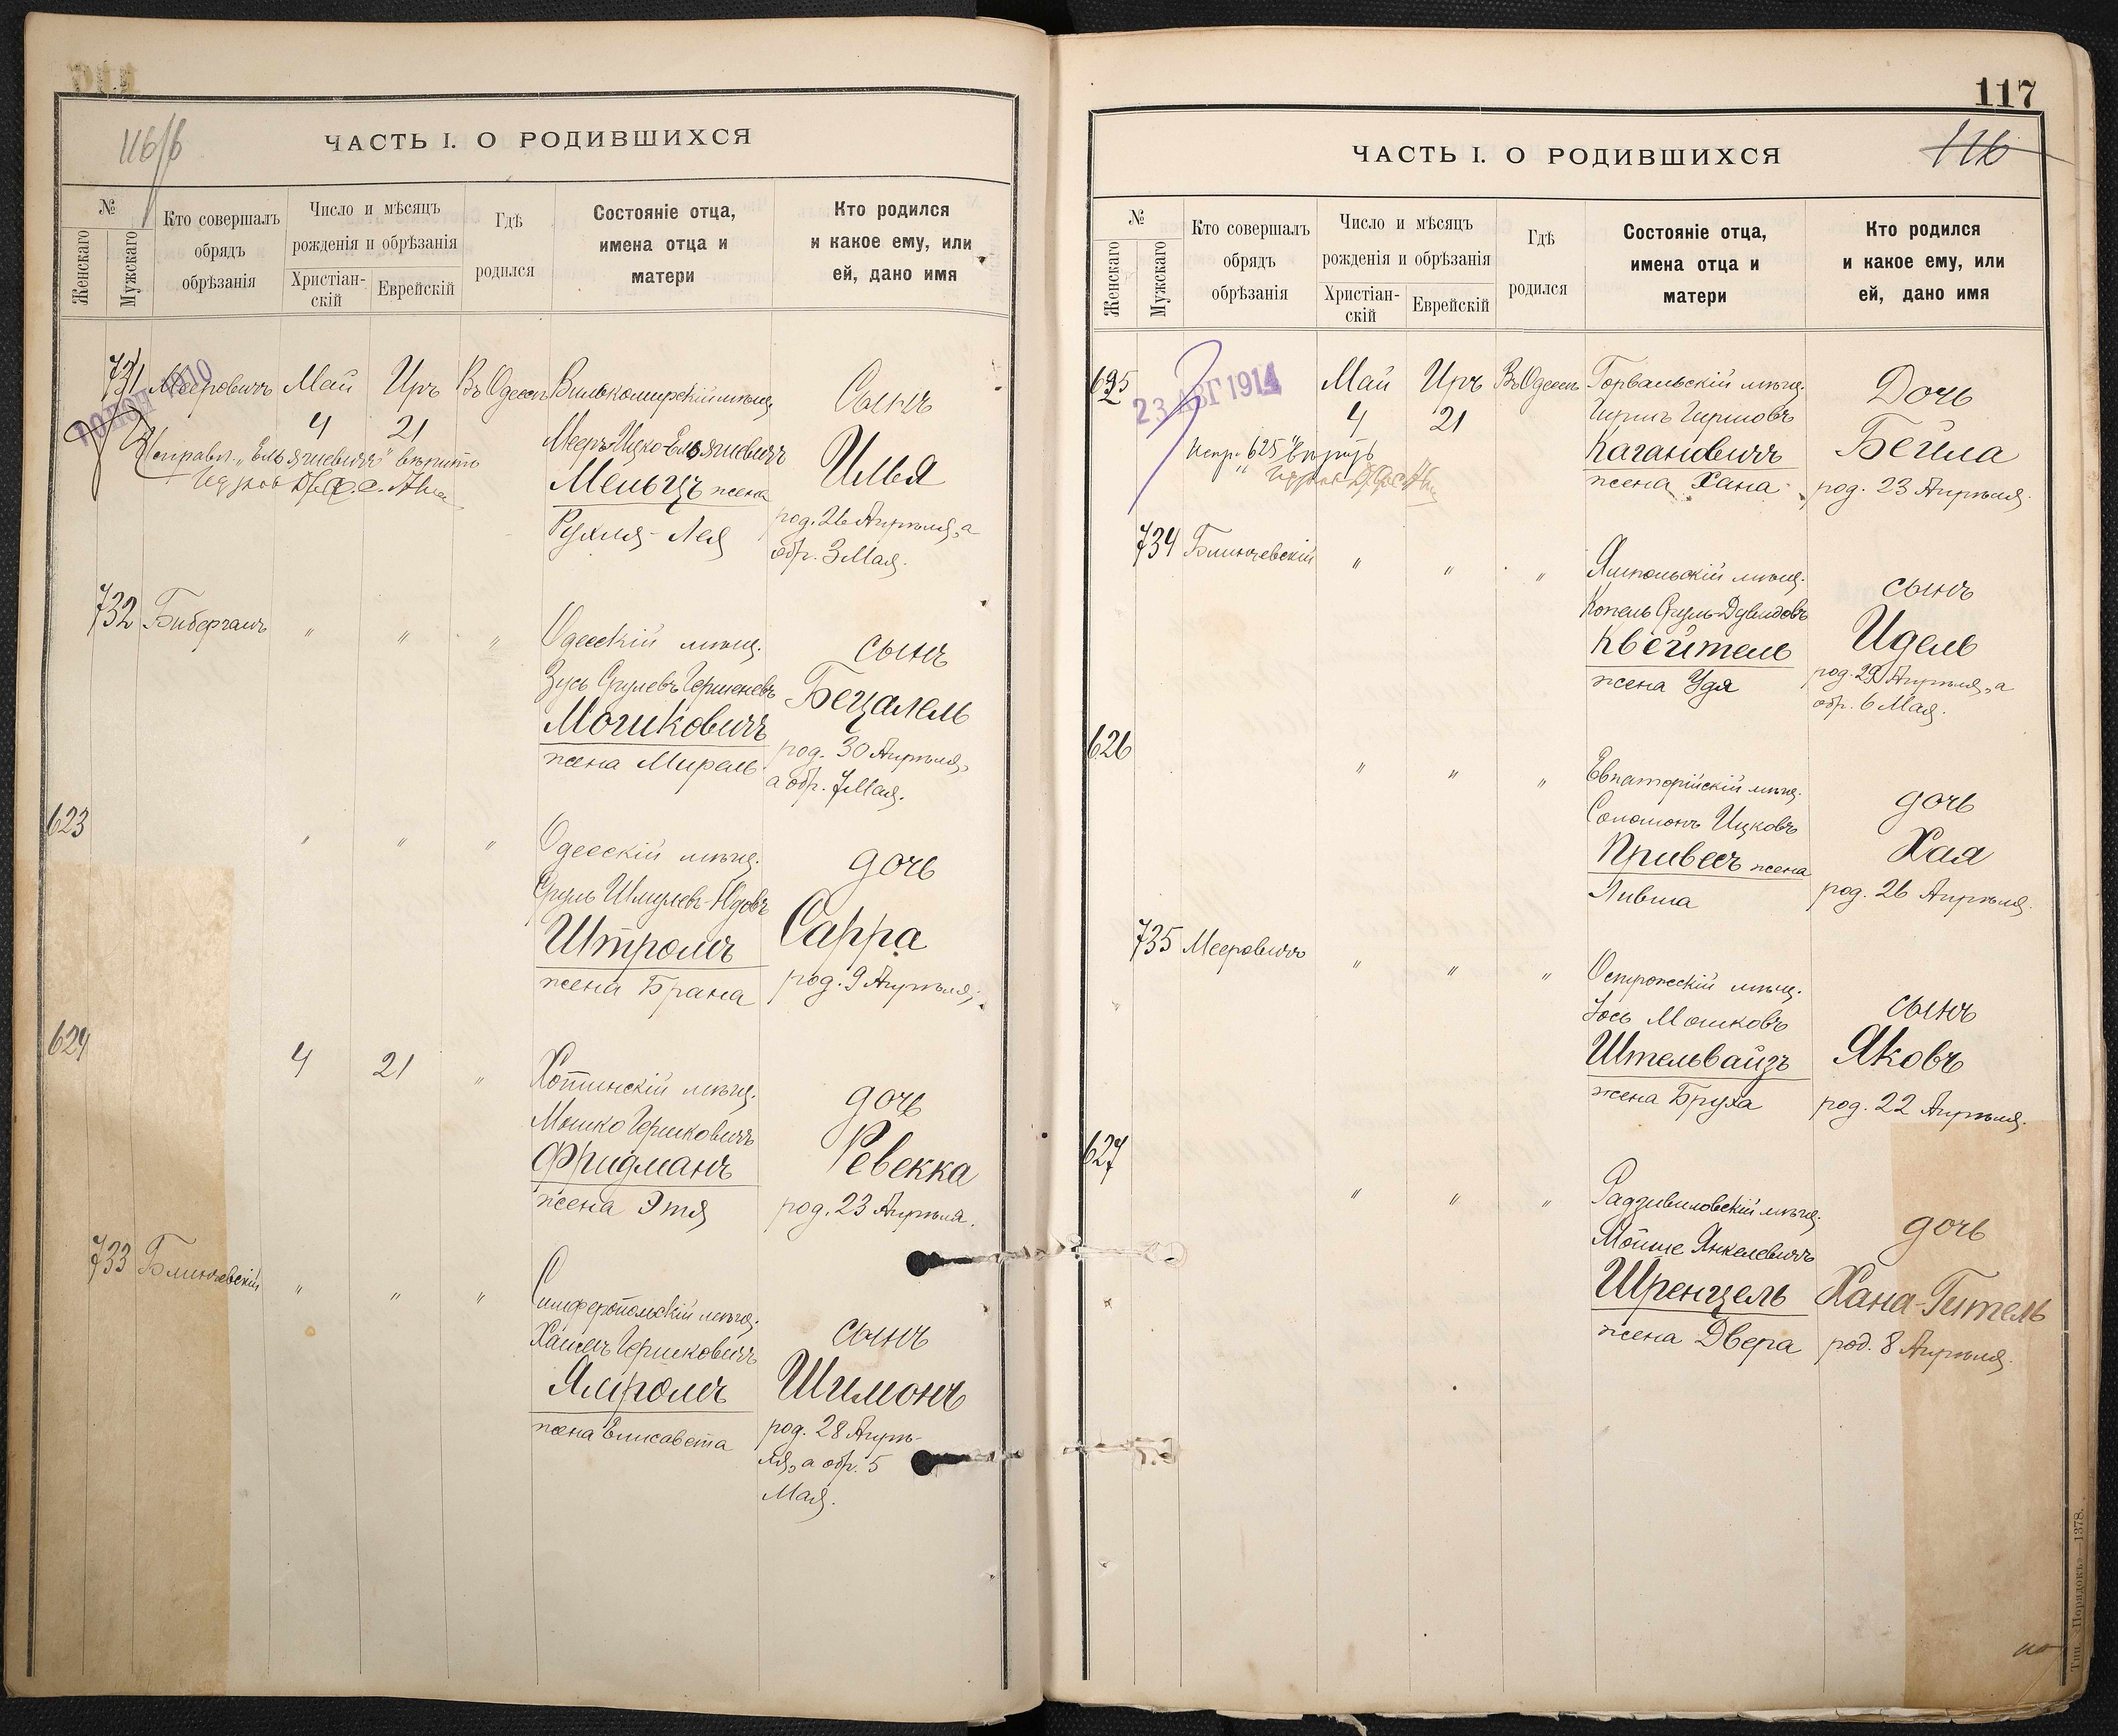 116/б
ЧАСТЬ I. О РОДИВШИХСЯ
№
Женскаго
Мужскаго
Кто совершалъ
обрядъ
обрѣзанія
Число и мѣсяцъ
рожденія и обрѣзанія
Христіан-
скій
Еврейскій
Гдѣ
родился
Состояніе отца,
имена отца и
матери
Кто родился
и какое ему, или
ей, дано имя
731 Мееровичъ Май Иръ Въ Одессѣ Вилькомирскій мѣщ. Сынъ
4 21
Мееръ-Ицко Ельяшевичъ
Мельцъ жена
Рухля-Лея
Илья
род. 26 Апрѣля, а
обр. 3 Мая.
Исправл. „Ельяшевичъ" вѣрить
732 Биберганъ " " "
Одесскій мѣщ.
Зусь Срулевъ Гершеневъ
Мошковичъ
жена Мирель
сынъ
Бецалель
род. 30 Апрѣля,
а обр. 7 Мая.
623 " " "
Одесскій мѣщ.
Сруль Шмулев-Юдовъ
Штромъ
жена Брана
дочь
Сарра
род. 9 Апрѣля;
624 4 21 "
Хотинскій мѣщ.
Мошко Гершковичъ
Фридманъ
жена Этя
дочь
Ревекка
род. 23 Апрѣля.
733 Блинчевскій " " "
Симферопольскій мѣщ.
Хаимъ Гершковичъ
Ямполъ
жена Елисавета
сынъ
Шимонъ
род. 28 Апрѣ-
ля, а обр. 5
Мая.
117
116
ЧАСТЬ I. О РОДИВШИХСЯ
№
Женскаго
Мужскаго
Кто совершалъ
обрядъ
обрѣзанія
Число и мѣсяцъ
рожденія и обрѣзанія
Христіан-
скій
Еврейскій
Гдѣ
родился
Состояніе отца,
имена отца и
матери
Кто родился
и какое ему, или
ей, дано имя
625 Май Иръ Въ Одессѣ Горвальскій мѣщ. Дочь
23 АВГ 1914
4 21
Гиршъ Гиршовъ
Кагановичъ
жена Хана
Бейла
род. 23 Апрѣля.
Испр. „625" вѣрить
734 Блинчевскій " " "
Ямпольскій мѣщ.
Копель Сруль-Дувидовъ
Квейтель
жена Удя
сынъ
Идель
род. 29 Апрѣля, а
обр. 6 Мая.
626 " " "
Евпаторійскій мѣщ.
Соломонъ Ицковъ
Привесъ жена
Ливша
дочь
Хая
род. 26 Апрѣля.
735 Мееровичъ " " "
Острожскій мѣщ.
Іось Мошковъ
Штельвайзъ
жена Бруха
сынъ
Яковъ
род. 22 Апрѣля.
627 " " "
Радзивиловскій мѣщ.
Мойше Янкелевичъ
Шренцель
жена Двера
дочь
Хана-Гитель
род. 8 Апрѣля.
Тип. «Порядокъ»—1378.